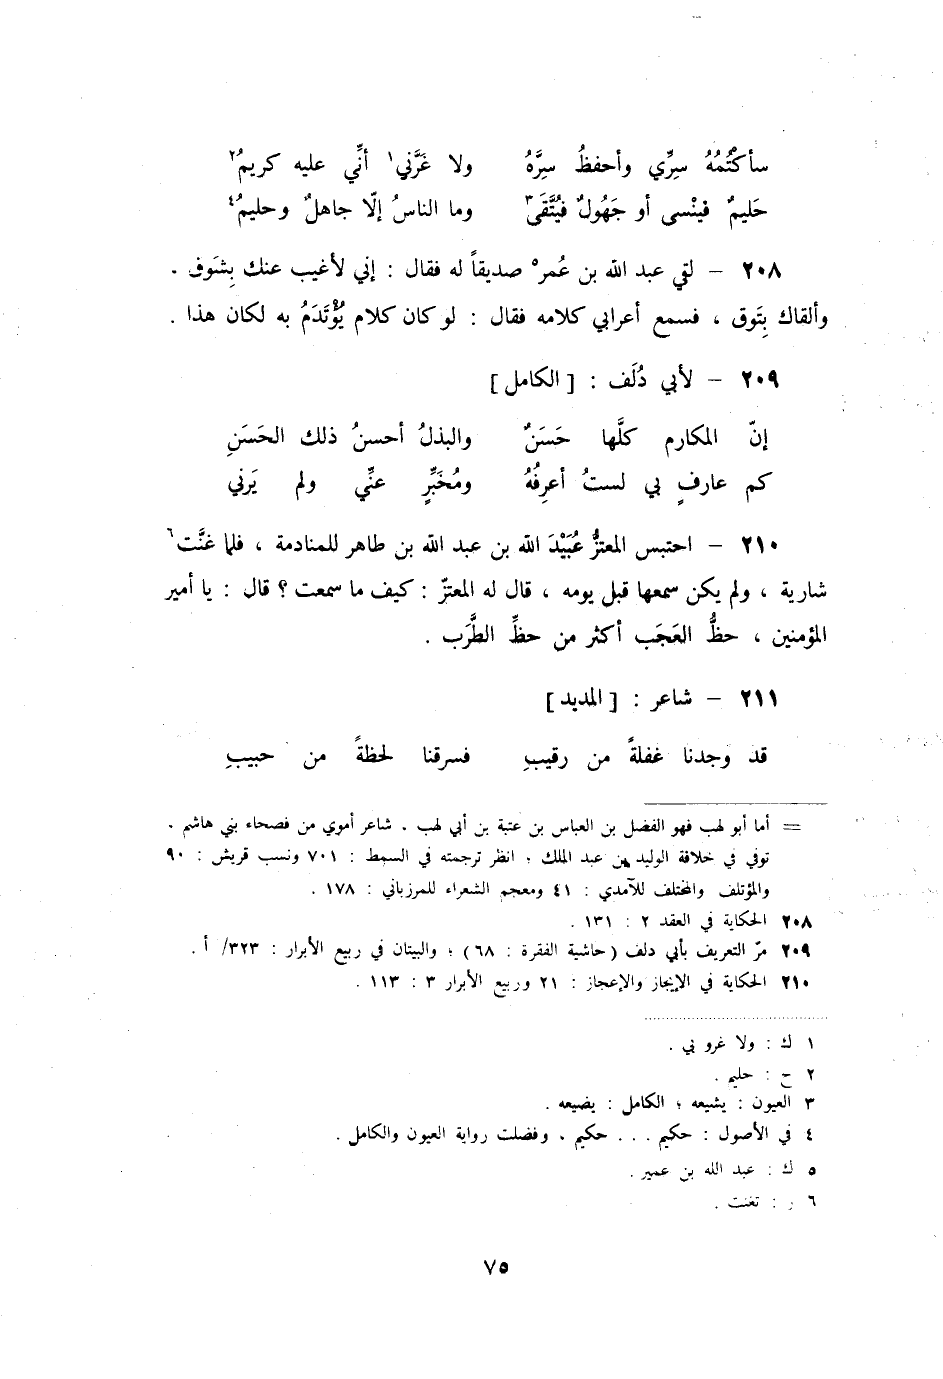 سأكْتُمُهُ سِرِّي وأحفظُ سِرَّهُ ولا غَرَّني١ أنِّي عليه كريمُ٢
حَليمٌ فينْسى أو جَهُولٌ فيُتَّقَى٣ وما الناسُ إلّا جاهلٌ وحليمُ٤
٢٠٨ – لقي عبد الله بن عُمر٥ صديقاً له فقال : إني لأغيب عنك بِشَوف .
وألقاك بِتَوق ، فسمع أعرابي كلامه فقال : لو كان كلام يُؤْتَدَمُ به لكان هذا .
٢٠٩ – لأبي دُلَف : [ الكامل ]
إنّ المكارم كلَّها حَسَنٌ والبذلُ أحسنُ ذلك الحَسَنِ
كم عارفٍ بي لستُ أعرِفُهُ ومُخَبِّرٍ عنِّي ولم يَرني
٢١٠ – احتبس المعتزُّ عُبَيْدَ الله بن عبد الله بن طاهر للمنادمة ، فلما غنَّت٦
شارية ، ولم يكن سمعها قبل يومه ، قال له المعتزّ : كيف ما سمعت ؟ قال : يا أمير
المؤمنين ، حظُّ العَجَب أكثر من حظِّ الطَّرَب .
٢١١ – شاعر : [ المديد ]
قد وجدنا غفلةً من رقيبِ فسرقنا لحظةً من حبيبِ
= أما أبو لهب فهو الفضل بن العباس بن عتبة بن أبي لهب . شاعر أموي من فصحاء بني هاشم .
توفي في خلافة الوليد بن عبد الملك ؛ انظر ترجمته في السمط : ٧٠١ ونسب قريش : ٩٠
والمؤتلف والمختلف للآمدي : ٤١ ومعجم الشعراء للمرزباني : ١٧٨ .
٢٠٨ الحكاية في العقد ٢ : ١٣١ .
٢٠٩ مرّ التعريف بأبي دلف ( حاشية الفقرة : ٦٨ ) ؛ والبيتان في ربيع الأبرار : ٣٢٣/ أ .
٢١٠ الحكاية في الإيجاز والإعجاز : ٢١ وربيع الأبرار ٣ : ١١٣ .
١ ك : ولا غرو بي .
٢ ح : حليم .
٣ العيون : يشيعه ؛ الكامل : يضيعه .
٤ في الأصول : حكيم . . . حكيم ، وفضلت رواية العيون والكامل .
٥ ك : عبد الله بن عمير .
٦ ر : تغنت .
٧٥